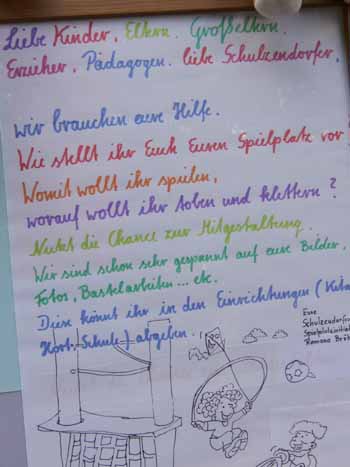 Liebe Kinder, Eltern, Großeltern,
Erzieher, Pädagogen, liebe Schulzendorfer,
wir brauchen eure Hilfe.
Wie stellt ihr Euch Euren Spielplatz vor?
Womit wollt ihr spielen,
worauf wollt ihr toben und klettern?
Nutzt die Chance zur Mitgestaltung.
Wir sind schon sehr gespannt auf eure Bilder,
Fotos, Bastelarbeiten... etc.
Diese könnt ihr in den Einrichtungen (Kita,
Hort, Schule) abgeben.
Eure
Schulzendorfer
Spielplatzinitiat
Ramona